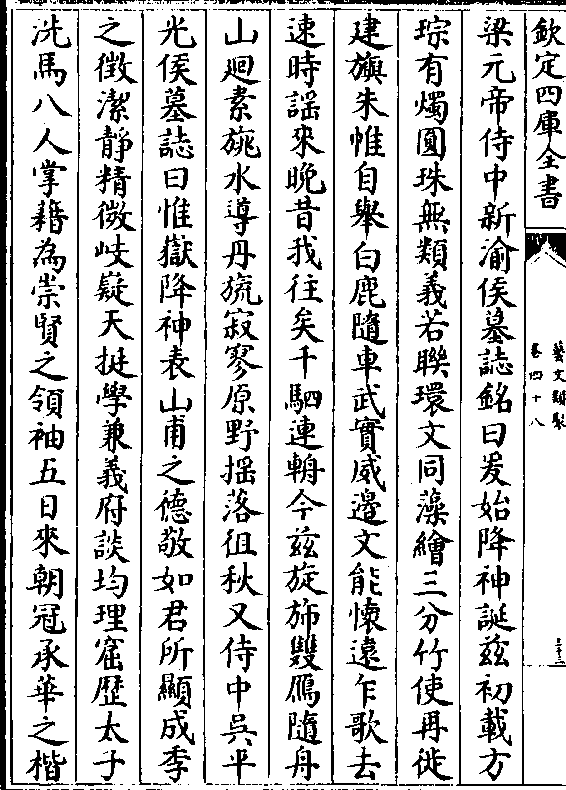 欽定四庫全書
藝文類聚
卷四十八
三十二
梁元帝侍中新渝侯墓誌銘曰爰始降神誕兹初載方
琮有燭圓珠無類義若聯環文同藻繪三分竹使再徙
建旟朱帷自舉白鹿隨車武實威邊文能懷遠乍歌去
速時謡來晚昔我往矣千駟連輈今兹旋斾雙鴈隨舟
山迴素旐水導丹旒寂寥原野揺落徂秋又侍中吳平
光侯墓誌曰惟嶽降神表山甫之德敬如君所顯成季
之徴潔靜精微岐嶷天挺學兼義府談均理窟歴太子
洗馬八人掌籍為崇賢之領袖五日來朝冠承華之楷